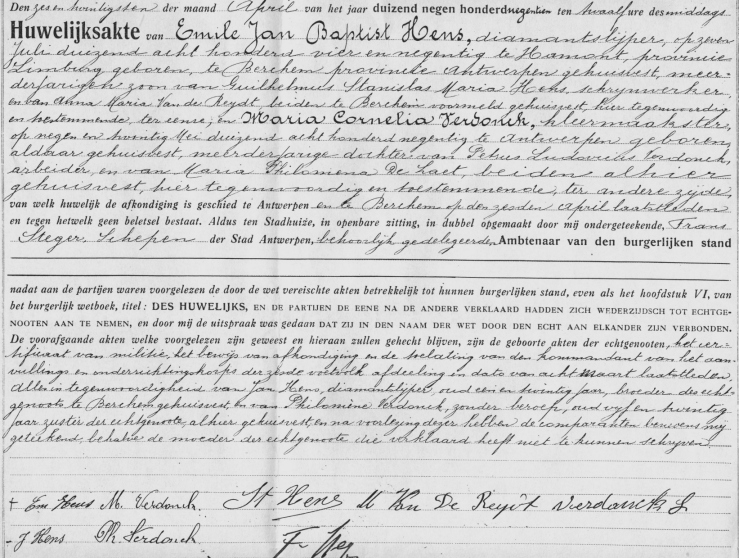 Den zes en twintigsten der maand April van het jaar duizend negen honderd negentien ten twaalf ure des middags
Huwelijksakte van Emile Jan Baptist Hens, diamantslijper, op zeven
Juli duizend acht honderd vier en negentig te Hamont, provincie
Limburg geboren, te Berchem provincie Antwerpen gehuisvest, meer-
derjarigen zoon van Guilhelmus Stanislas Maria Hens, schrijnwerker,
en van Anna Maria Van de Reydt, beiden te Berchem voormeld gehuisvest, hier tegenwoordig
en toestemmende, ter eenre; en Maria Cornelia Verdonck, kleermaakster,
op negen en twintig Mei duizend acht honderd negentig te Antwerpen geboren,
aldaar gehuisvest, meerderjarige dochter van Petrus Ludovicus Verdonck,
arbeider, en van Maria Philomena De Laet, beiden alhier
gehuisvest, hier tegenwoordig en toestemmende, ter andere zijde
van welk huwelijk de afkondiging is geschied te Antwerpen en te Berchem op den zesden April laatstleden
en tegen hetwelk geen beletsel bestaat. Aldus ten Stadhuize, in openbare zitting, in dubbel opgemaakt door mij ondergeteekende, Frans
Steger, Schepen der Stad Antwerpen, behoorlijk gedelegeerde, Ambtenaar van den burgerlijken stand
nadat aan de partijen waren voorgelezen de door de wet vereischte akten betrekkelijk tot hunnen burgerlijken stand, even als het hoofdstuk VI, van
het burgerlijk wetboek, titel: DES HUWELIJKS, EN DE PARTIJEN DE EENE NA DE ANDERE VERKLAARD HADDEN ZICH WEDERZIJDSCH TOT ECHTGE-
NOOTEN AAN TE NEMEN, en door mij de uitspraak was gedaan DAT ZIJ IN DEN NAAM DER WET DOOR DEN ECHT AAN ELKANDER ZIJN VERBONDEN.
De voorafgaande akten welke voorgelezen zijn geweest en hieraan zullen gehecht blijven, zijn de geboorte akten der echtgenooten, het cer-
tifikaat van militie, het bewijs van afkondiging en de toelating van den kommandant van het aan-
vullings en onderrichtingskorps der zesde afdeeling in dato van acht Maart laatstleden.
Alles in tegenwoordigheid van Jan Hens, diamantslijper, oud een en twintig jaar, broeder des echt-
genoots te Berchem gehuisvest, en van Philomène Verdonck, zonder beroep, oud vijf en twintig
jaar zuster der echtgenoote, alhier gehuisvest, en na voorlezing dezer hebben de comparanten benevens mij
geteekend, behalve de moeder der echtgenoote die verklaard heeft niet te kunnen schrijven.
Em Hens M. Verdonck. St Hens De Reydt Verdonck
J Hens Ph. Verdonck